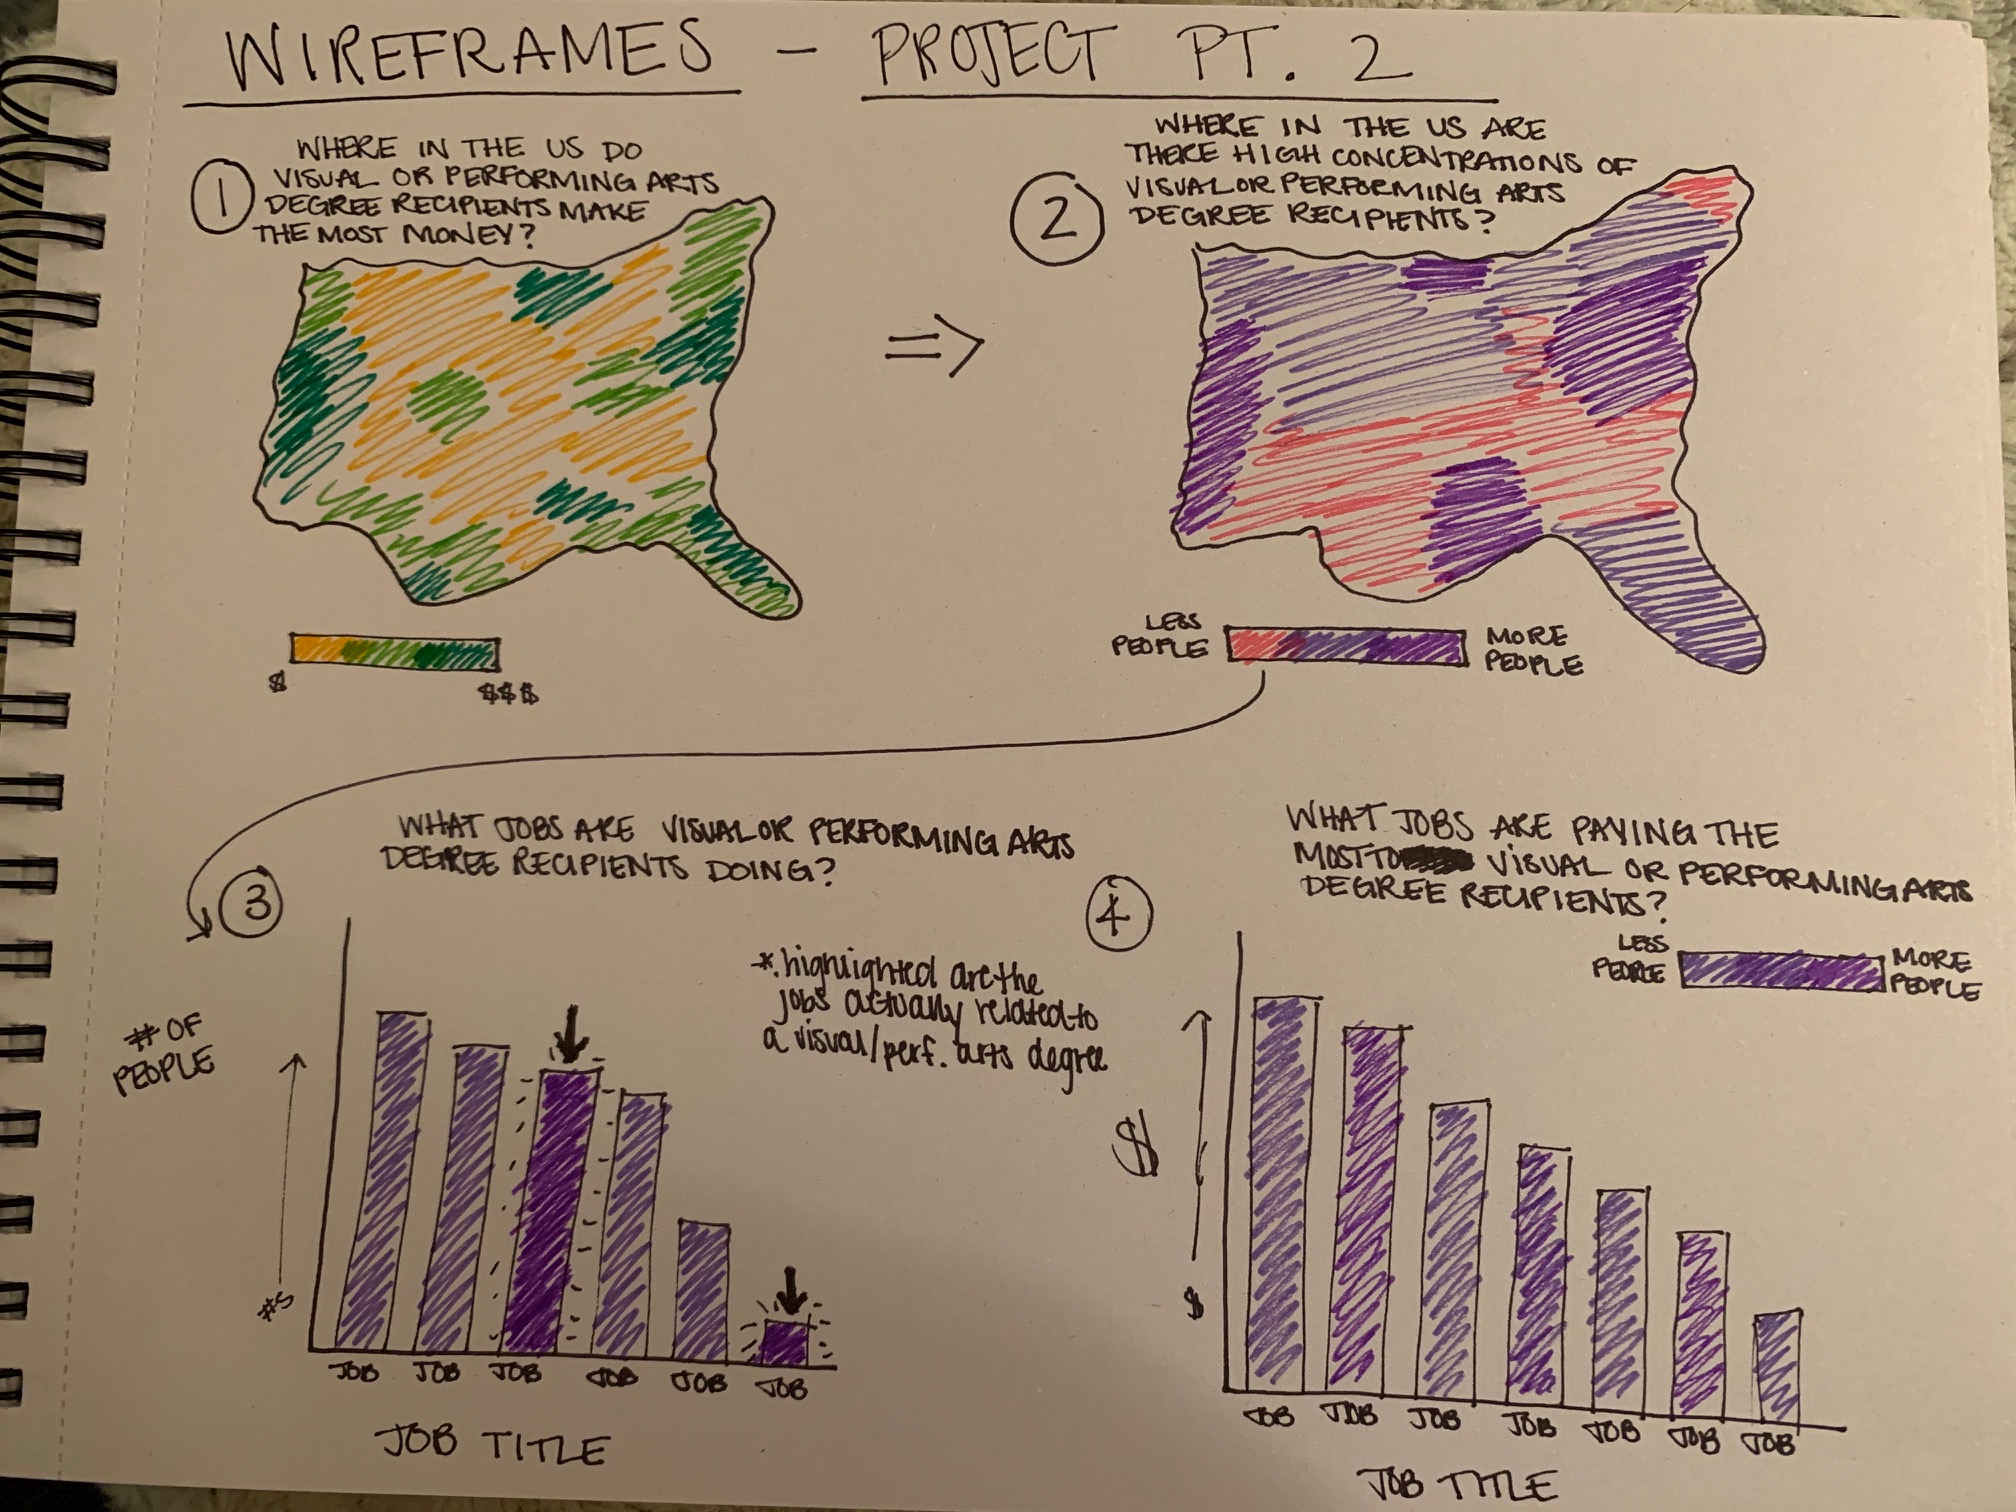 WIREFRAMES - PROJECT PT. 2
1
WHERE IN THE US DO
VISUAL OR PERFORMING ARTS
DEGREE RECIPIENTS MAKE
THE MOST MONEY?
$
$$$
2
WHERE IN THE US ARE
THERE HIGH CONCENTRATIONS OF
VISUAL OR PERFORMING ARTS
DEGREE RECIPIENTS?
LESS
PEOPLE
MORE
PEOPLE
3
WHAT JOBS ARE VISUAL OR PERFORMING ARTS
DEGREE RECIPIENTS DOING?
*highlighted are the
jobs actually related to
a visual/perf. arts degree
# OF
PEOPLE
#S
JOB JOB JOB JOB JOB JOB
JOB TITLE
4
WHAT JOBS ARE PAYING THE
MOST TO VISUAL OR PERFORMING ARTS
DEGREE RECIPIENTS?
LESS
PEOPLE
MORE
PEOPLE
$
$
JOB JOB JOB JOB JOB JOB JOB
JOB TITLE